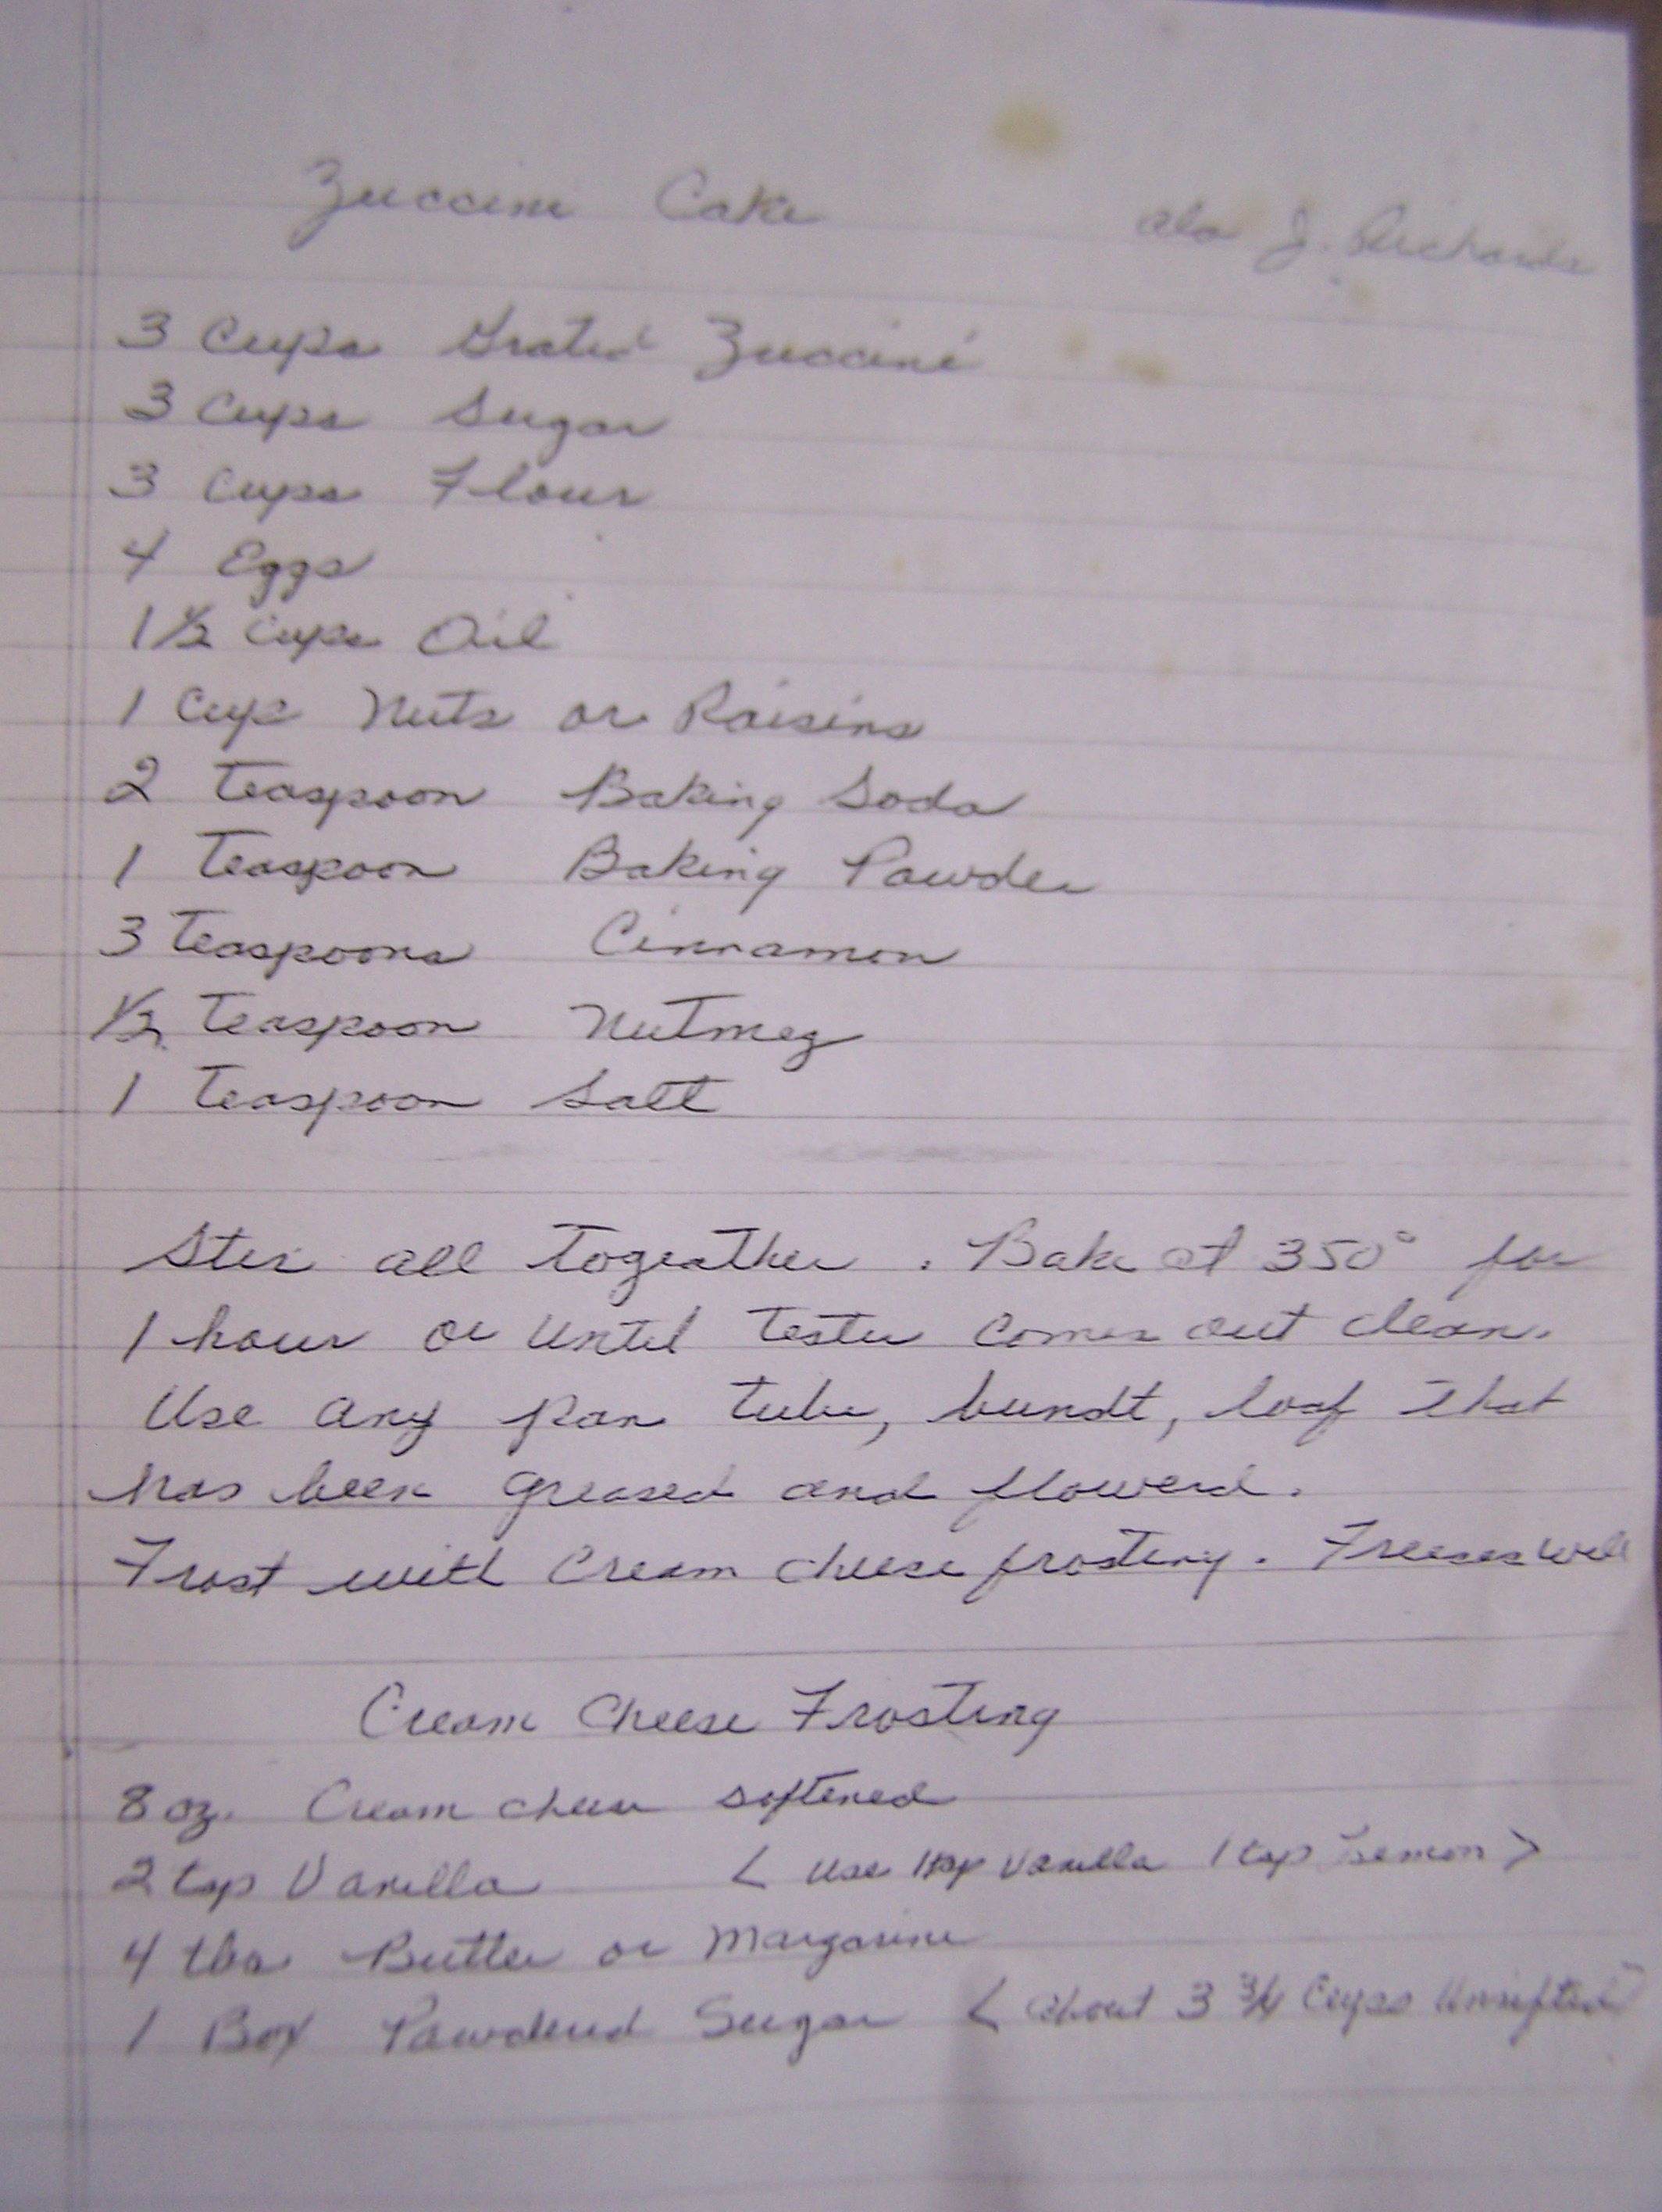 Zuccini Cake ala J. Richards
3 Cups Grated Zuccini
3 Cups Sugar
3 Cups Flour
4 Eggs
1 1/2 Cups Oil
1 Cup Nuts or Raisins
2 Teaspoon Baking Soda
1 Teaspoon Baking Powder
3 Teaspoons Cinnamon
1/2 Teaspoon Nutmeg
1 Teaspoon Salt
Stir all Togeather. Bake at 350° for
1 hour or Until Tester Comes out clean.
Use any pan tube, bundt, loaf that
has been greased and flowerd.
Frost with Cream Cheese frosting. Freeses well
Cream Cheese Frosting
8 oz. Cream cheese softened
2 tsp Vanilla < use 1 tsp Vanilla 1 tsp Lemon >
4 tbs Butter or Margarine
1 Box Powdered Sugar < about 3 3/4 Cups Unsifted >